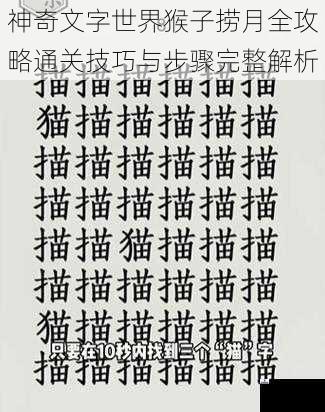 神奇文字世界猴子捞月全攻
略通关技巧与步骤完整解析
描描描描描描
猫描描描描描
描描描描描描
描描描描描描
描描猫描描描
描描描描描描
猫描描描描描
只要在10秒内找到三个“猫”字
描描描描描描